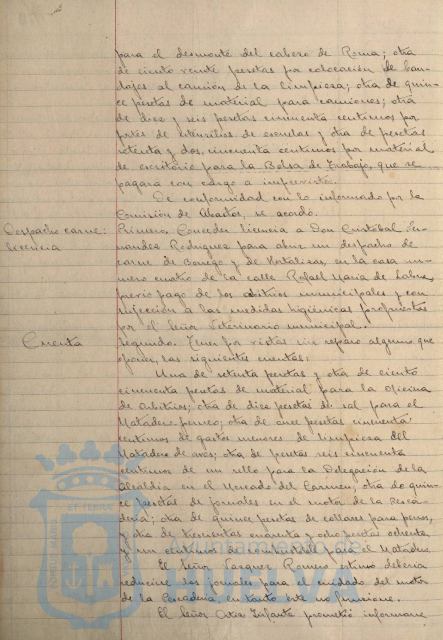 para el desmonte del cabezo de Roma; otra
de ciento veinte pesetas por colocación de ban-
dejas al camión de la limpieza; otra de quin-
ce pesetas de material para camiones; otra
de doce y seis pesetas cincuenta centimos por
portes de utensilios de escuelas y otra de pesetas
setenta y dos, cincuenta centimos por material
de escritorio para la Bolsa de Trabajo, que se
pagará con cargo a imprevistos.
De conformidad con lo informado por la
Comisión de Abastos, se acordó.
Despacho carne: licencia
Primero. Conceder licencia a Don Cristóbal Fer-
nandez Rodriguez para abrir un despacho de
carne de Borrego y de Hortalizas, en la casa nu-
mero cuatro de la calle Rafael Maria de Labra,
previo pago de los arbitrios municipales y con
sujección a las medidas higiénicas propuestas
por el Señor Veterinario municipal.
Cuenta
Segundo. Tener por vistas sin reparo alguno que
oponer, las siguientes cuentas:
Una de setenta pesetas y otra de ciento
cincuenta pesetas de material para la oficina
de Arbitrios; otra de diez pesetas de sal para el
Matadero; otra de once pesetas cincuenta
centimos de gastos menores de limpieza del
Matadero de aves; otra de pesetas seis cincuenta
centimos de un sello para la Delegación de la
Alcaldia en el Mercado del Carmen; otra de quin-
ce pesetas de jornales en el motor de la Pesca-
dería; otra de quince pesetas de collares para perros,
y otra de trescientas cuarenta y ocho pesetas ochenta
y un centimos de combustible para el Matadero.
El Señor Vazquez Romero estimó debería
reducirse los jornales para el cuidado del motor
de la Pescadería en tanto este no funcione.
El Señor Infante prometió informarse